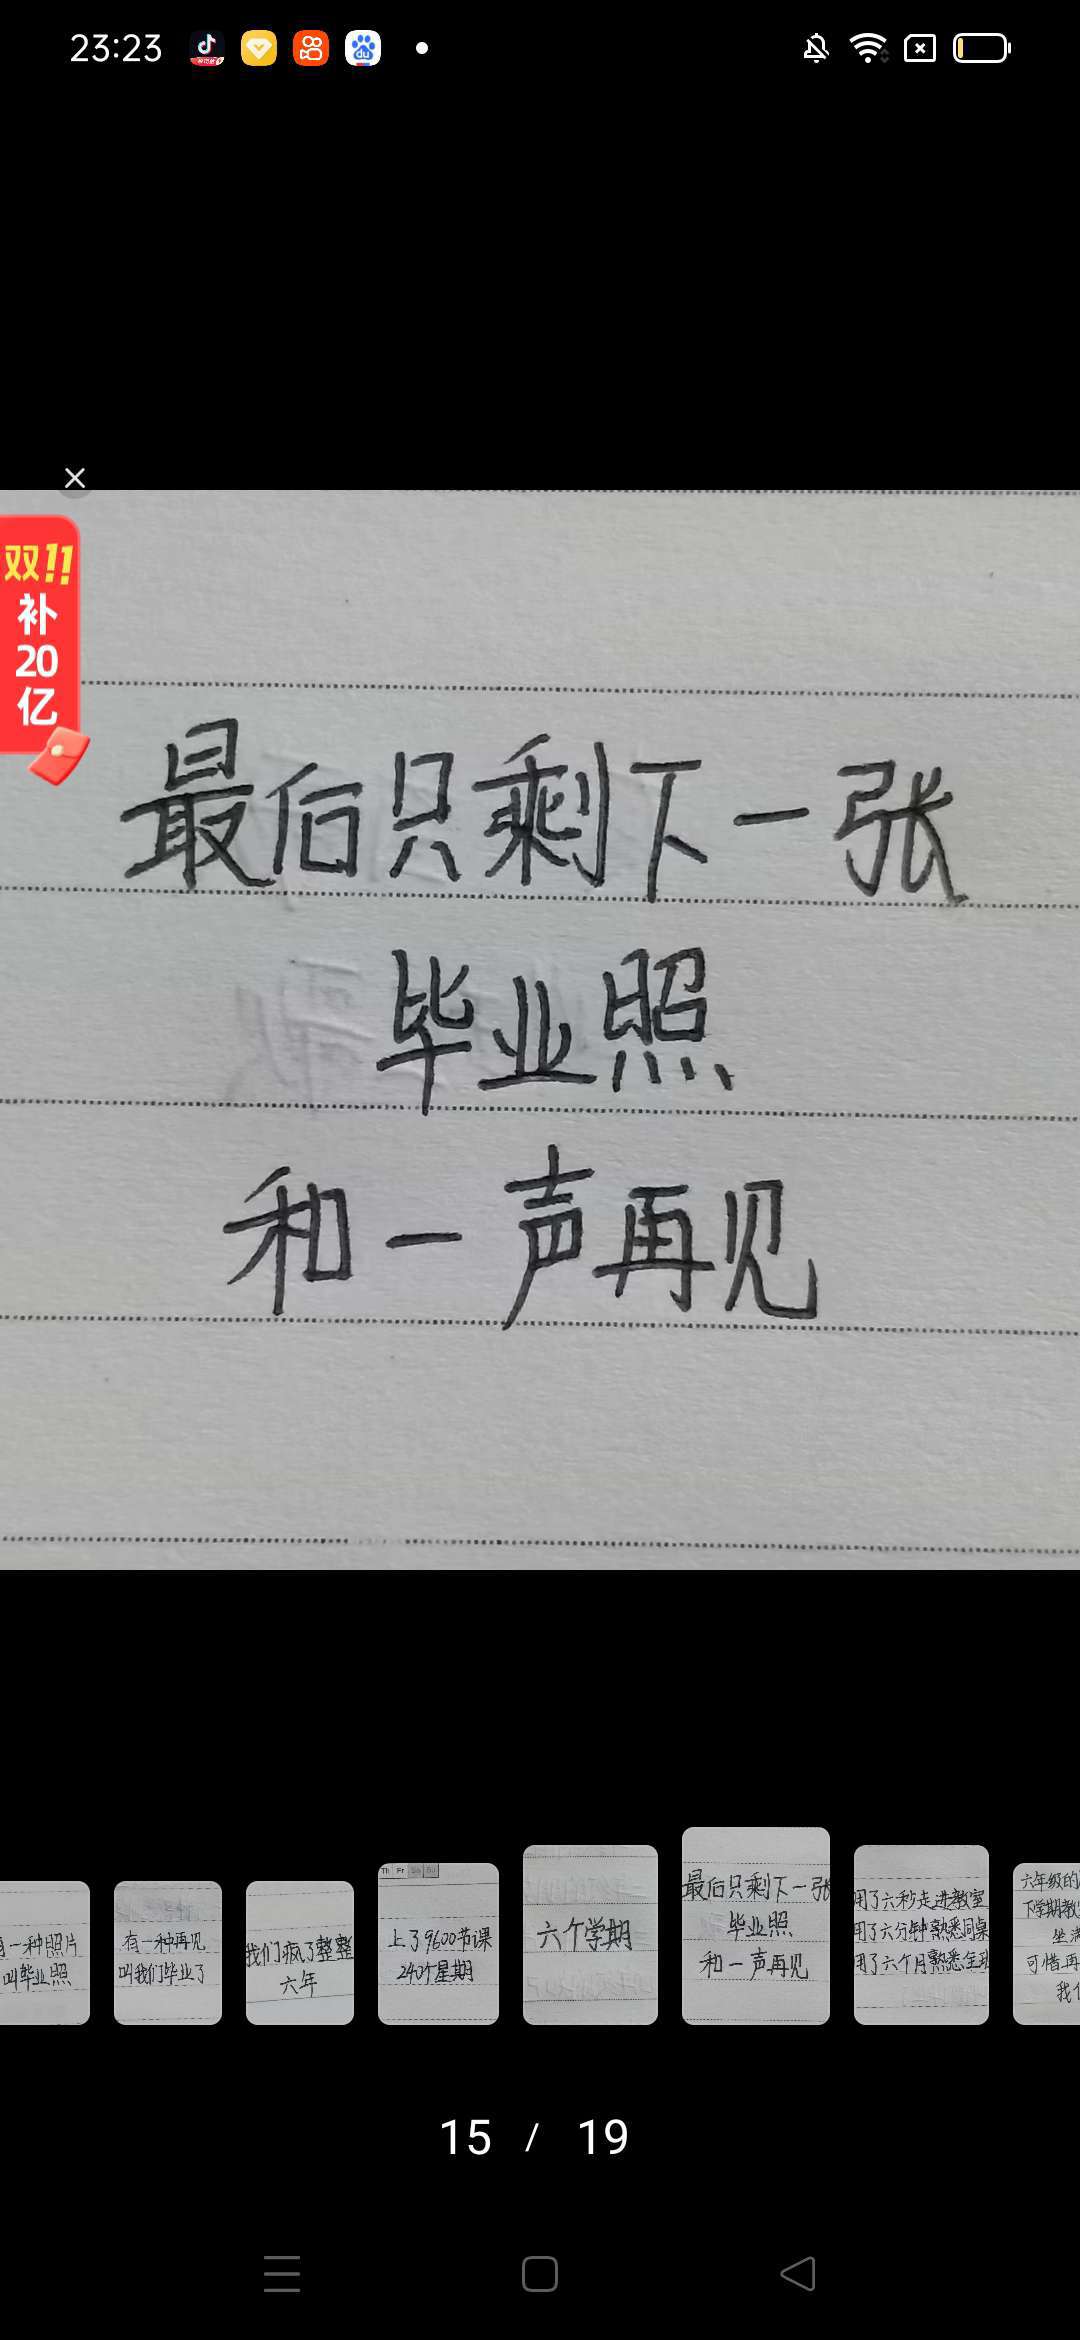 23:23
双11
补
20
亿
最后只剩下一张
毕业照
和一声再见
一种照片
叫毕业照
有一种再见
叫我们毕业了
我们疯了整整
六年
Th Fr Sa Su
上了9600节课
240个星期
六个学期
最后只剩下一张
毕业照
和一声再见
用了六秒走进教室
用了六分钟熟悉同桌
用了六个月熟悉全班
六年级的
下学期教
坐满
可惜再
我们
15 / 19